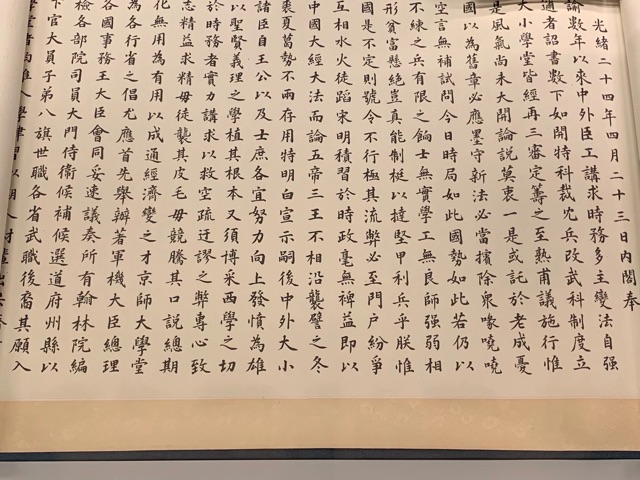 光緒二十四年四月二十三日內閣奉
諭數年以來中外臣工講求時務多主變法自強
邇者詔書數下如開特科裁冗兵改武科制度立
大小學堂皆經再三審定籌之至熟甫議施行惟
是風氣尚未大開論說莫衷一是或託於老成憂
國以為舊章必應墨守新法必當擯除衆喙嘵嘵
空言無補試問今日時局如此國勢如此若仍以
不練之兵有限之餉士無實學工無良師強弱相
形貧富懸絕豈真能制梃以撻堅甲利兵乎朕惟
國是不定則號令不行極其流弊必至門戶紛爭
互相水火徒蹈宋明積習於時政毫無裨益即以
中國大經大法而論五帝三王不相沿襲譬之冬
裘夏葛勢不兩存用特明白宣示嗣後中外大小
諸臣自王公以及士庶各宜努力向上發憤為雄
以聖賢義理之學植其根本又須博采西學之切
於時務者實力講求以救空疏迂謬之弊專心致
志精益求精毋徒襲其皮毛毋競騰其口說總期
化無用為有用以成通經濟變之才京師大學堂
為各行省之倡尤應首先舉辦著軍機大臣總理
各國事務王大臣會同妥速議奏所有翰林院編
檢各部院司員大門侍衛候補候選道府州縣以
下官大員子弟八旗世職各省武職後裔其願入
學堂者均准入學肄習以期人材輩出共